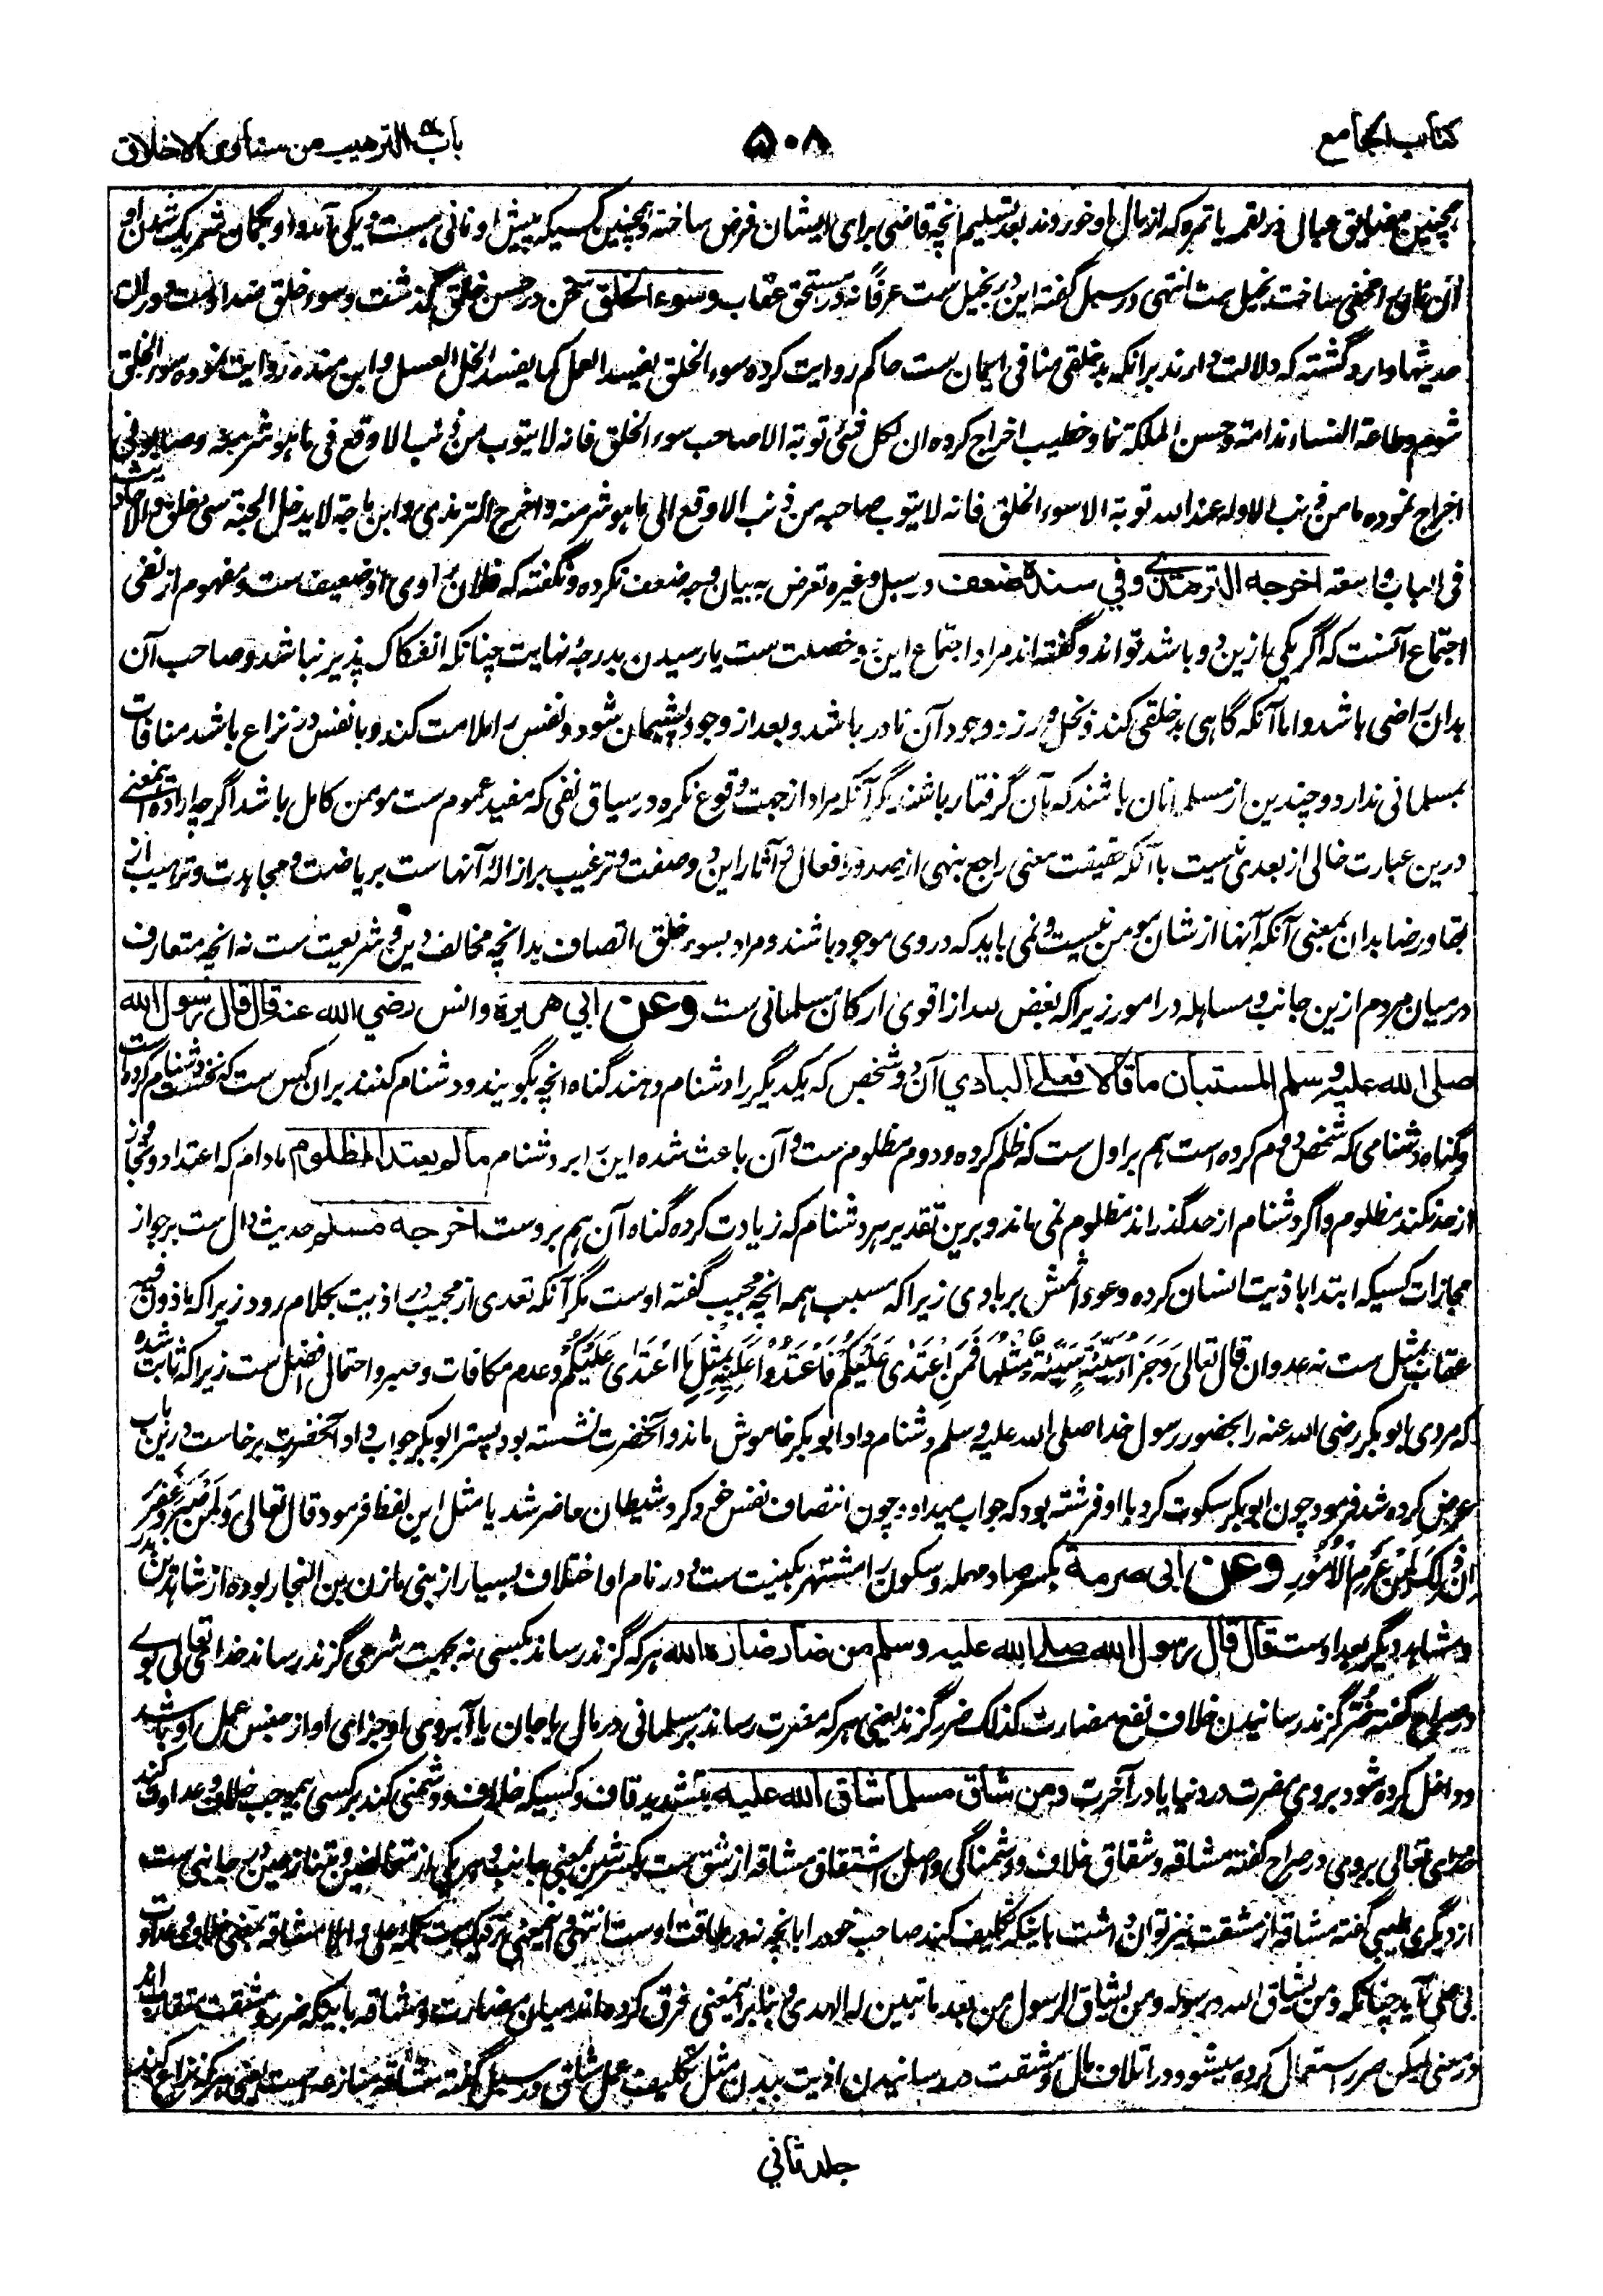 کتاب الجامع
۵۰۸
باب الترهیب من مساوی الاخلاق
همچنین مضایق عیال در لقمه یا تمره که از مال او خوردند بعد تسلیم انچه قاضی برای ایشان فرض ساخته و همچنین کسیکه پیش او نانی هست و یکی آمد و او بگمان شریک شدن او
آن نان را مخفی ساخت بخیل ست انتهی در سبل گفته این در بخیل ست عرفا نه در مستحق عقاب وسوء الخلق سخن در حسن خلق گذشت و سوء خلق ضد اوست و دران
حدیثها وارد گشته که دلالت دارند برانکه بدخلقی منافی ایمان ست حاکم روایت کرده سوء الخلق یفسد العمل کما یفسد الخل العسل و ابن منده روایت نموده سوء الخلق
شوم وطاعة النساء ندامة وحسن الملکة نماء و خطیب اخراج کرده ان لکل شئ توبة الا صاحب سوء الخلق فانه لا یتوب من ذنب الا وقع فی ما هو شر منه و صابونی
اخراج نموده ما من ذنب الا وله عند الله توبة الا سوء الخلق فانه لا یتوب صاحبه من ذنب الا وقع الی ما هو شر منه و اخرج الترمذی و ابن ماجة لا یدخل الجنة سیئ خلق والاحادیث
فی الباب واسعة اخرجه الترمذي وفي سنده ضعف در سبل و غیره تعرض به بیان وجه ضعف نکرده و نگفته که فلان راوی او ضعیف ست و مفهوم از نفی
اجتماع آنست که اگر یکی ازین دو باشد تواند و گفته اند مراد اجتماع این دو خصلت ست یا رسیدن بدرجهٔ نهایت چنانکه انفکاک پذیر نباشد و صاحب آن
بدان راضی باشد و اما آنکه گاهی بدخلقی کند و بخل ورزد و وجود آن نادر باشد و بعد از وجود پشیمان شود و نفس را ملامت کند و با نفس در نزاع باشد منافات
بمسلمانی ندارد و چندین از مسلمانان باشند که بآن گرفتار باشند دیگر آنکه مراد از جهت وقوع نکره در سیاق نفی که مفید عموم ست مومن کامل باشد اگر چه ارادهٔ این معنی
درین عبارت خالی از بعدی نیست با آنکه حقیقت معنی راجع بنهی از صدور افعال و آثار این دو صفت و ترغیب بر ازالهٔ آنهاست بریاضت و مجاهدت و ترهیب از
بقا و رضا بدان بمعنی آنکه آنها از شان مومن نیست و نمی باید که در وی موجود باشند و مراد بسوء خلق اتصاف بدانچه مخالف دین و شریعت ست نه انچه متعارف
درمیان مردم ازین جانب و مساهله در امور زیراکه بغض لله از اقوی ارکان مسلمانی ست وعن ابي هريرة وانس رضي الله عنه قال قال رسول الله
صلى الله عليه وسلم المستبان ما قالا فعلى البادي آن دو شخص که یکدیگر را دشنام دهند گناه انچه بگویند و دشنام کنند بران کس ست که نخست دشنام کرده است
و گناه دشنامی که شخص دوم کرده است هم بر اول ست که ظلم کرده و دوم مظلوم ست و آن باعث شده این را بر دشنام مالم يعتد المظلوم مادام که اعتدا و تجاوز
از حد نکند مظلوم و اگر دشنام از حد گذراند مظلوم نمی ماند و برین تقدیر هر دشنام که زیادت کرده گناه آن هم بروست اخرجه مسلم حدیث دال ست بر جواز
مجازات کسیکه ابتدا باذیت انسان کرده و عود اثمش بر بادی زیراکه مسبب همه انچه مجیب گفته اوست مگر آنکه تعدی از مجیب در اذیت بکلام رود زیراکه ماذون فیه
عقاب بمثل ست نه عدوان قال تعالی وَجَزَاءُ سَيِّئَةٍ سَيِّئَةٌ مِّثْلُهَا فَمَنِ اعْتَدَى عَلَيْكُمْ فَاعْتَدُوا عَلَيْهِ بِمِثْلِ مَا اعْتَدَى عَلَيْكُمْ و عدم مکافات و صبر و احتمال افضل ست زیراکه ثابت شده
که مردی ابوبکر رضی الله عنه را بحضور رسول خدا صلی الله علیه وسلم دشنام داد ابوبکر خاموش ماند و آنحضرت نشسته بود پستر ابوبکر جواب داد آنحضرت برخاست درین باب
عرض کرده شد فرمود چون ابوبکر سکوت کرد با او فرشته بود که جواب میداد و چون انتصاف نفس خود کرد شیطان حاضر شد یا مثل این لفظ فرمود قال تعالی وَلَمَنْ صَبَرَ وَغَفَرَ
اِنَّ ذٰلِكَ لَمِنْ عَزْمِ الْاُمُوْرِ وعن ابي صرمة بکسر صاد مهمله و سکون را مشتهر بکنیت ست و در نام او اختلاف بسیار از بنی مازن بن النجار بوده از شاهدین بدر
و مشاهد دیگر بعد اوست قال قال رسول الله صلى الله عليه وسلم من ضار ضاره الله هر که گزند رساند بکسی نه بجهت شرعی گزند رساند خدا تعالی بوی
در صراح گفته ضر گزند رسانیدن خلاف نفع مضارت کذلک ضرر گزند یعنی هر که مضرت رساند بر مسلمانی در مال یا جان یا آبروی او جزای او از جنس عمل او باشد
و داخل کرده شود بروی مضرت در دنیا یا در آخرت ومن شاق مسلما شاق الله عليه بتشدید قاف و کسیکه خلاف و دشمنی کند بر کسی بموجب خلاف و عداوت کند
خدای تعالی بروی در صراح گفته مشاقه و شقاق خلاف و دشمناگی و اصل اشتقاق مشاقه از شق ست بکسر شین بمعنی جانب و هر یکی از متخالفین و متنازعین در جانبی ست
از دیگری طیبی گفته مشاقه از مشقت نیز توان داشت باینکه تکلیف کند صاحب خود را بانچه نه در طاقت اوست انتهی
بی علی آید چنانکه ومن یشاق الله ورسوله ومن یشاق الرسول من بعد ما تبین له الهدی و بنا بر اینمعنی فرق کرده اند میان مضارت و مشاقه باینکه ضرر و مشقت متقارب اند
در معنی لیکن ضرر استعمال کرده میشود در اتلاف مال و مشقت در رسانیدن اذیت ببدن مثل تکلیف عمل شاق و در سبل گفته مشاقه منازعه است یعنی هر که نزاع کند
جلد ثانی